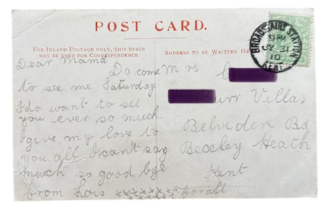 POST CARD.
FOR INLAND POSTAGE ONLY, THIS SPACE
MAY BE USED FOR CORRESPONDENCE.
ADDRESS TO BE WRITTEN HERE.
BROADSTAIRS STATION
9 PM
JY 31
10
KENT
Dear Mama
Do come
to see me Saturday
I do want to see
you ever so much
give my love to
you all I cant say
much so good bye
from Lois xxxxxxxxx
Mrs
Villas
Belvedere Rd
Bexley Heath
Kent